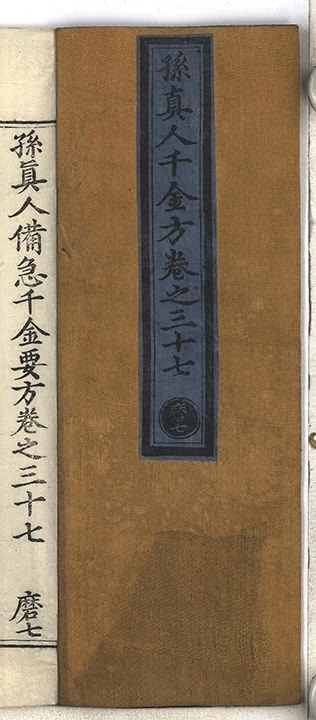 孫真人千金方卷之三十七
磨七
孫真人備急千金要方卷之三十七　磨七